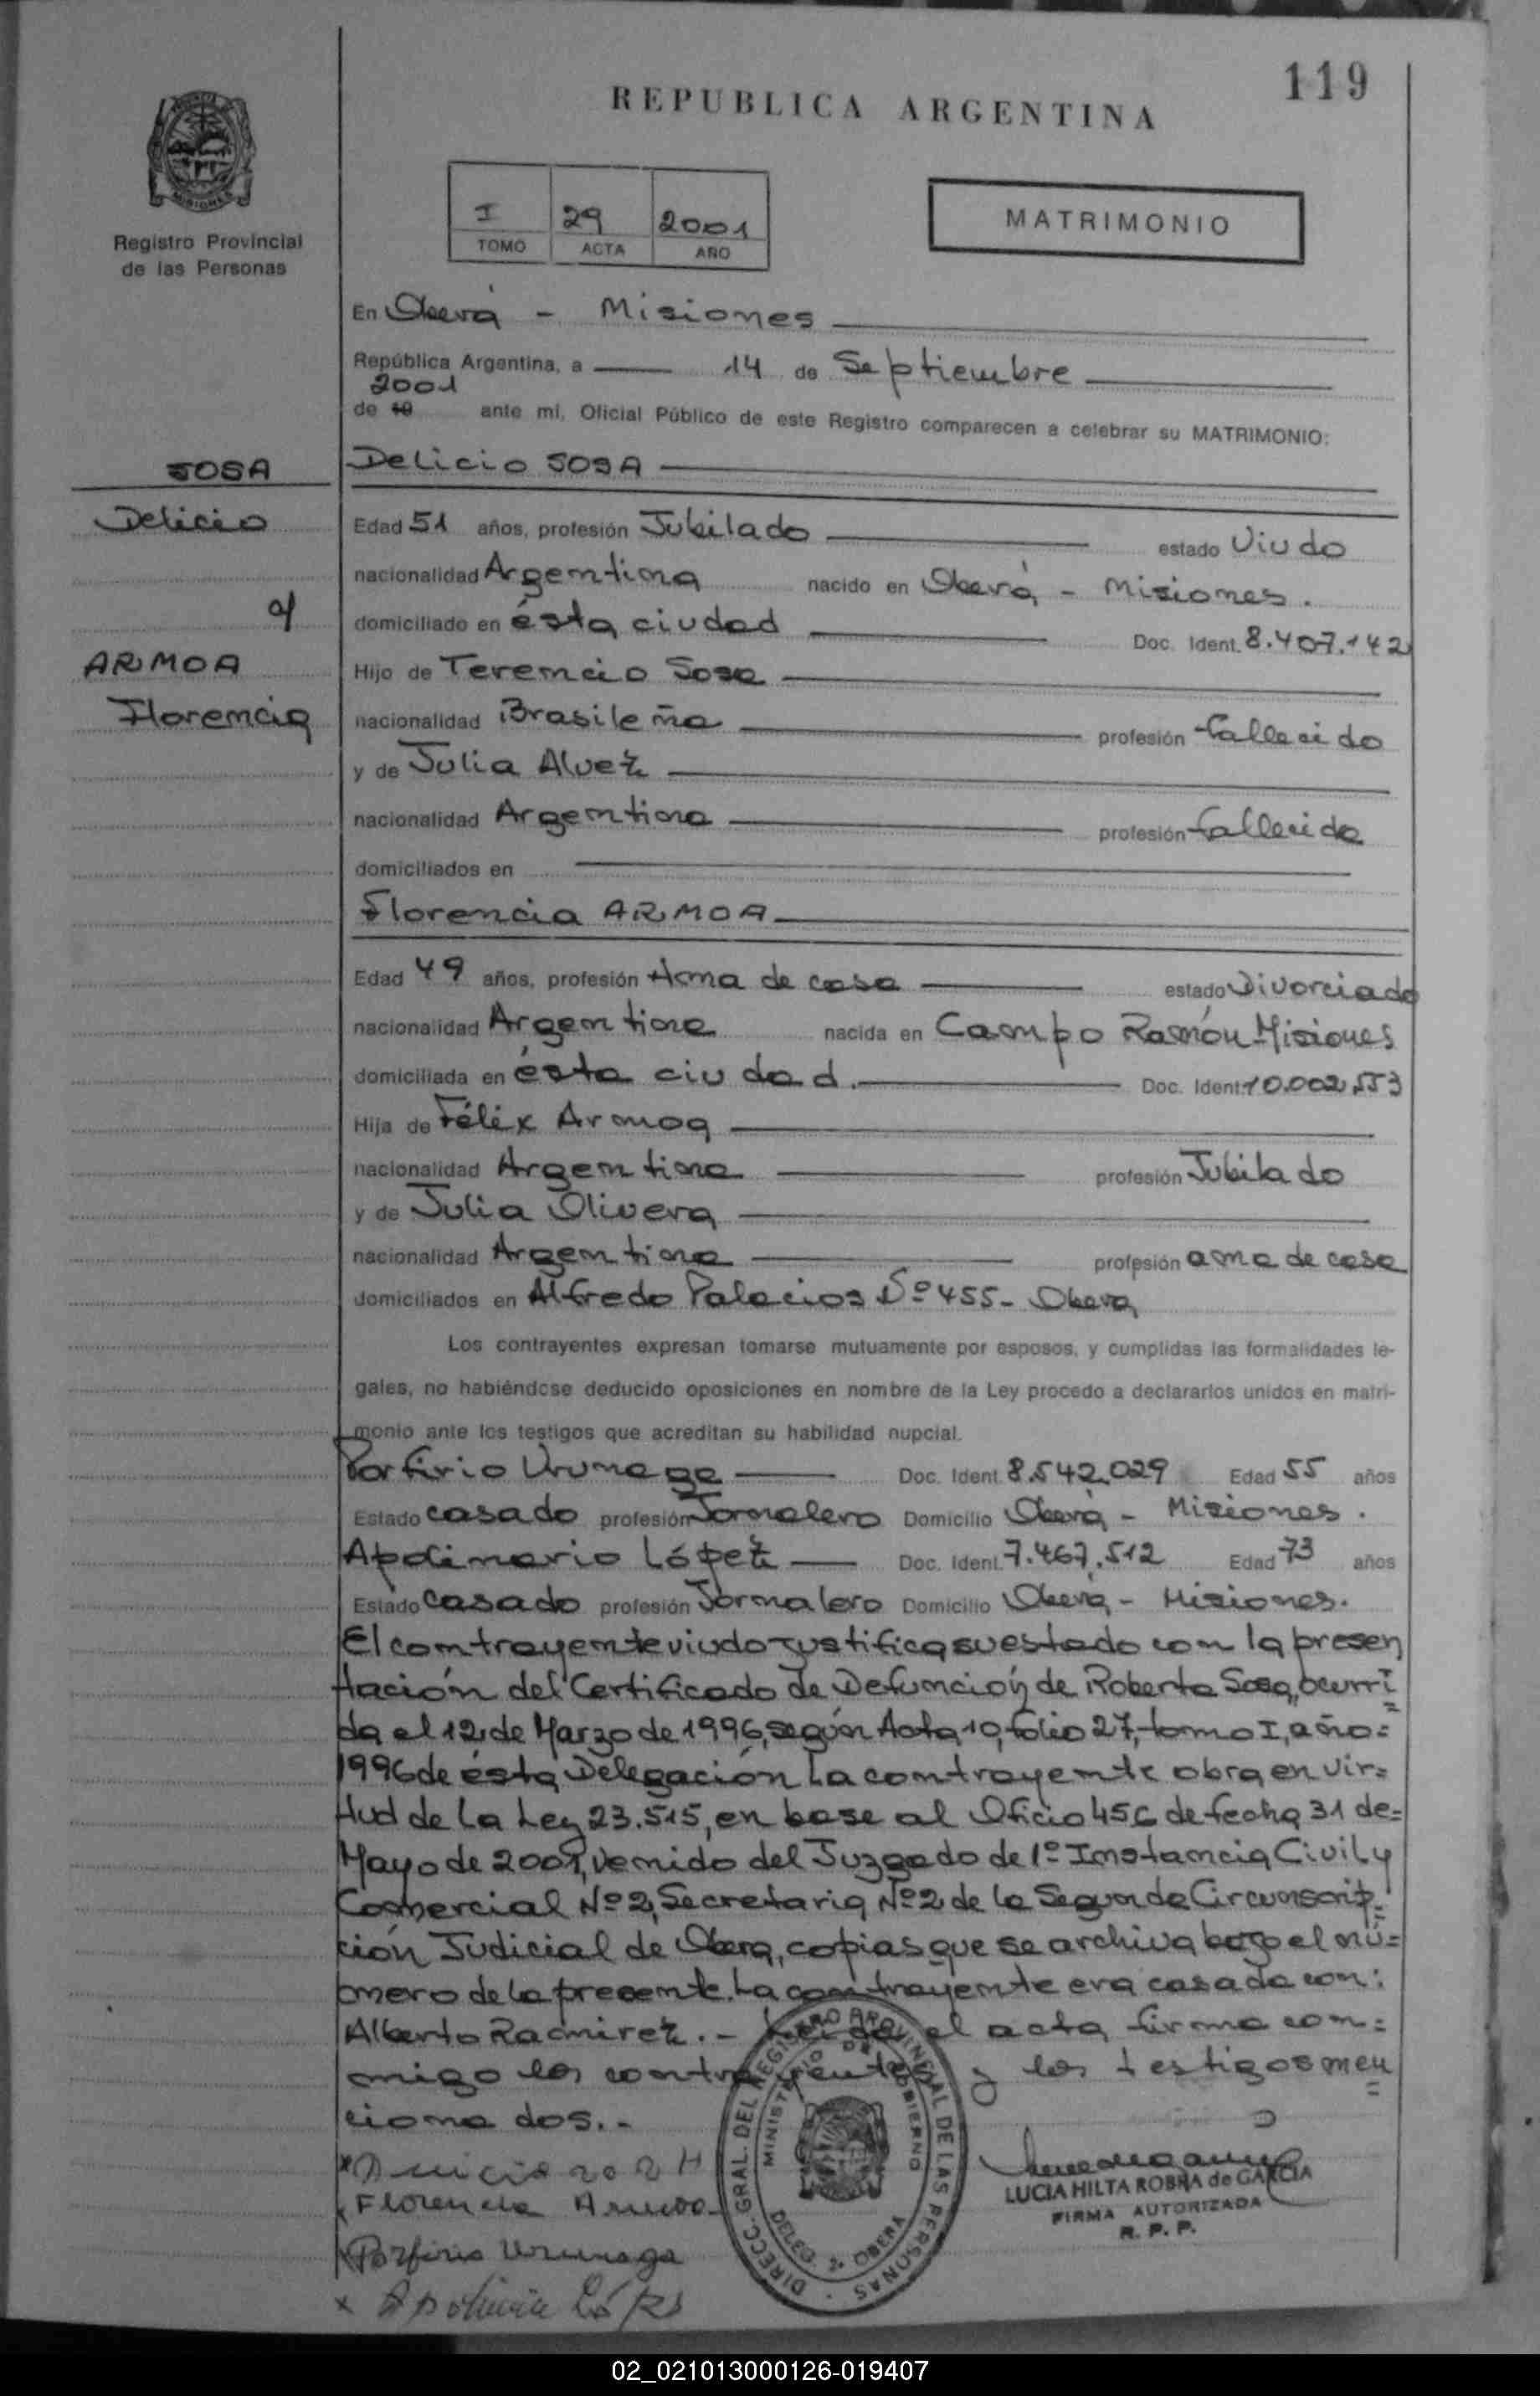 119
REPUBLICA ARGENTINA
MISIONES
Registro Provincial
de las Personas
I 29 2001
TOMO ACTA AÑO
MATRIMONIO
En Oberá - Misiones
República Argentina, a 14 de Septiembre
2001
de 19 ante mí, Oficial Público de este Registro comparecen a celebrar su MATRIMONIO:
SOSA
Delicio
c/
ARMOA
Florencia
Delicio SOSA
Edad 51 años, profesión Jubilado estado Viudo
nacionalidad Argentina nacido en Oberá - Misiones.
domiciliado en ésta ciudad Doc. Ident. 8.407.142
Hijo de Terencio Sosa
nacionalidad Brasileña profesión fallecido
y de Julia Alvez
nacionalidad Argentina profesión fallecida
domiciliados en
Florencia ARMOA
Edad 49 años, profesión Ama de casa estado Divorciada
nacionalidad Argentina nacida en Campo Ramón-Misiones
domiciliada en ésta ciudad. Doc. Ident. 10.002.553
Hija de Félix Armoa
nacionalidad Argentina profesión Jubilado
y de Julia Olivera
nacionalidad Argentina profesión ama de casa
domiciliados en Alfredo Palacios Nº 455- Oberá
Los contrayentes expresan tomarse mutuamente por esposos, y cumplidas las formalidades le-
gales, no habiéndose deducido oposiciones en nombre de la Ley procedo a declararlos unidos en matri-
monio ante los testigos que acreditan su habilidad nupcial.
Porfirio Urunaga Doc. Ident. 8.542.029 Edad 55 años
Estado casado profesión Jornalero Domicilio Oberá - Misiones.
Apolinario López Doc. Ident. 7.467.512 Edad 73 años
Estado casado profesión Jornalero Domicilio Oberá - Misiones.
El contrayente viudo justifica su estado con la presen
tación del Certificado de Defunción de Roberta Sosa, ocurri=
da el 12 de Marzo de 1996, según Acta 10, folio 27, tomo I, año=
1996 de ésta Delegación La contrayente obra en vir=
tud de la Ley 23.515, en base al Oficio 456 de fecha 31 de=
Mayo de 2001, venido del Juzgado de 1º Instancia Civil y
Comercial Nº 2, Secretaria Nº 2 de la Segunda Circunscrip=
ción Judicial de Oberá, copias que se archiva bajo el nú=
mero de la presente. La contrayente era casada con:
Alberto Ramirez.- Leída el acta firma con=
migo los contrayentes y los testigos men=
cionados.-
Florencia Armoa
Porfirio Urunaga
DIRECC. GRAL. DEL REGISTRO PROVINCIAL DE LAS PERSONAS
MINISTERIO DE GOBIERNO
DELEG. OBERA
LUCIA HILTA ROBHA de GARCIA
FIRMA AUTORIZADA
R. P. P.
02_021013000126-019407